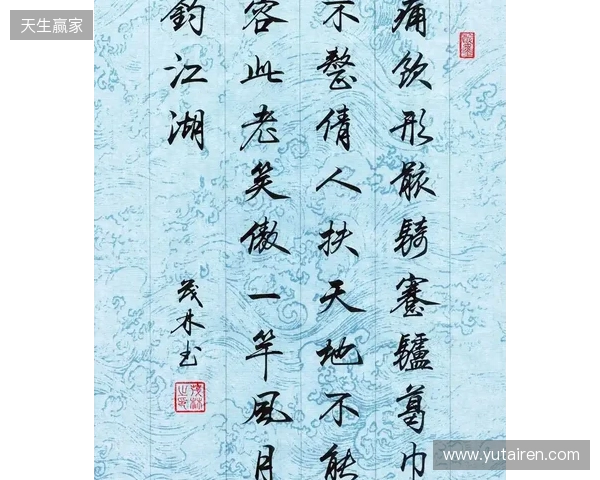 天生赢家
痛飲形骸騎蹇驢葛巾
不整倩人扶天地不能
容此老笑傲一竿風月
釣江湖
茂林书
www.yutairen.com